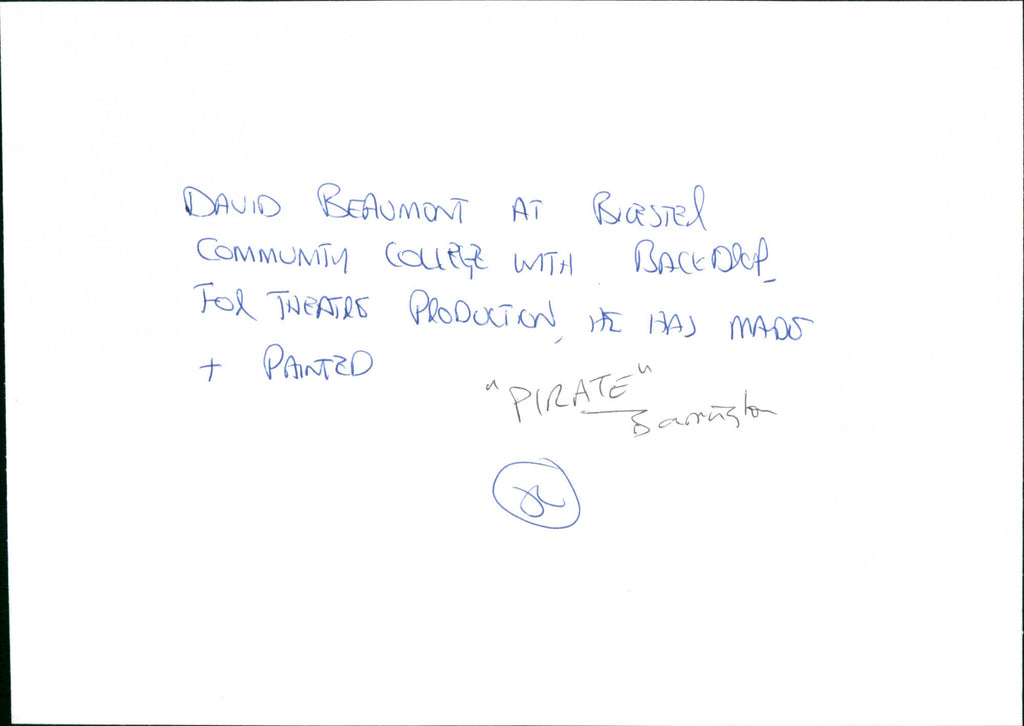 DAVID BEAUMONT AT BICESTER
COMMUNITY COLLEGE WITH BACKDROP
FOR THEATRE PRODUCTION, HE HAS MADE
+ PAINTED
"PIRATE"
Barrington